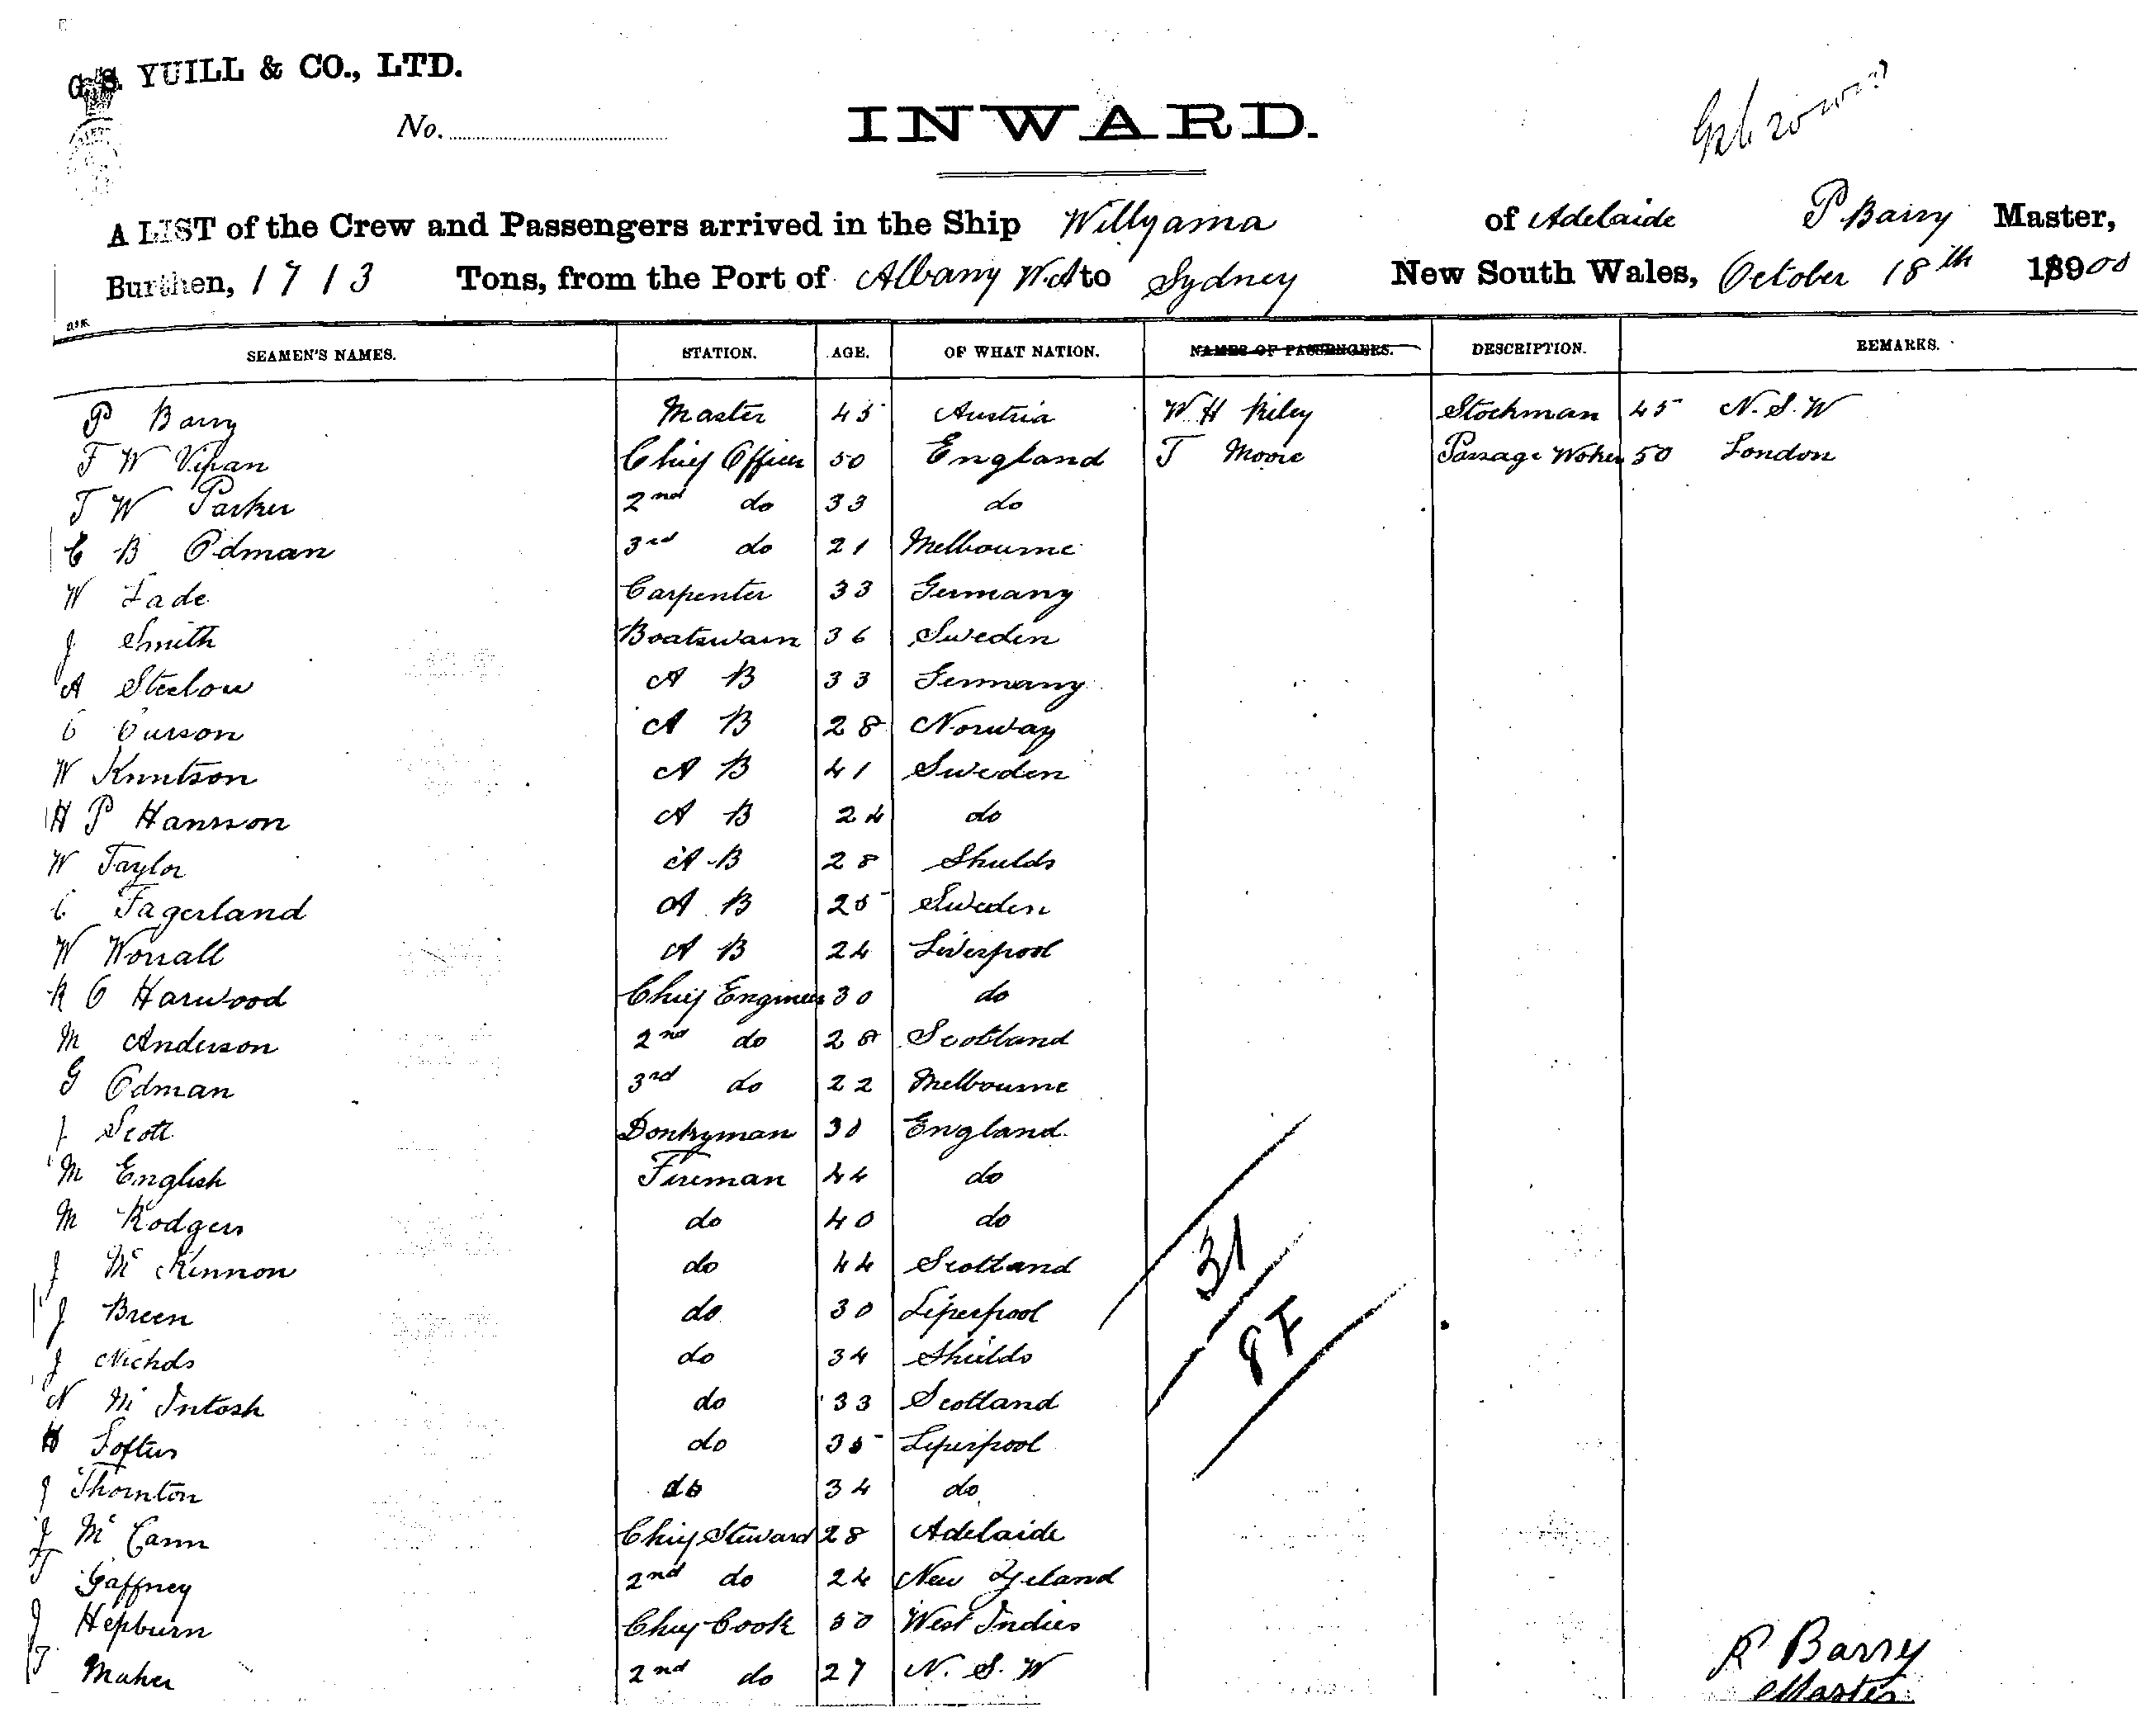 G. S. YUILL & CO., LTD.
No.
INWARD.
A LIST of the Crew and Passengers arrived in the Ship Willyama of Adelaide P Barry Master,
Burthen, 1713 Tons, from the Port of Albany W.A to Sydney New South Wales, October 18th 18900
SEAMEN'S NAMES. STATION. AGE. OF WHAT NATION. NAMES OF PASSENGERS. DESCRIPTION. REMARKS.
P Barry Master 45 Austria W H Riley Stockman 45 N. S. W
F W Vipan Chief Officer 50 England T Moore Passage Woker 50 London
T W Parker 2nd do 33 do
C B Odman 3rd do 21 Melbourne
W Lade Carpenter 33 Germany
J Smith Boatswain 36 Sweden
A Steelow A B 33 Germany
A B 28 Norway
W Knutson A B 41 Sweden
H P Hansson A B 24 do
W Taylor A B 28 Shields
C Fagerland A B 25 Sweden
W Worrall A B 24 Liverpool
R O Harwood Chief Engineer 30 do
M Anderson 2nd do 28 Scotland
G Odman 3rd do 22 Melbourne
J Scott Donkyman 30 England
M English Fireman 44 do
M Rodgers do 40 do
J Mc Kinnon do 44 Scotland
J Breen do 30 Liperpool
J Nichols do 34 Shields
N Mc Intosh do 33 Scotland
H Loftus do 35 Liperpool
J Thornton do 34 do
J Mc Cann Chief Steward 28 Adelaide
T Gaffney 2nd do 24 New Zeland
J Hepburn Chief Cook 50 West Indies
T Maher 2nd do 27 N. S. W
31
P Barry
Master